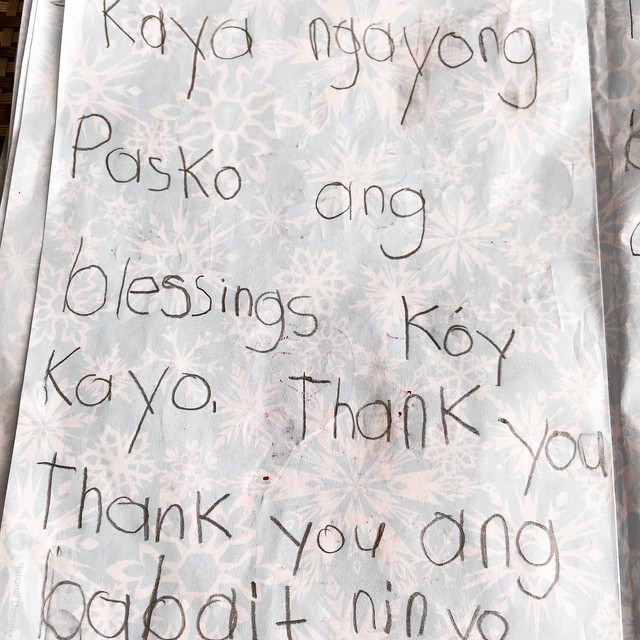 Kaya ngayong
Pasko ang
blessings Kóy
Kayo. Thank you
Thank you ang
babait ninyo